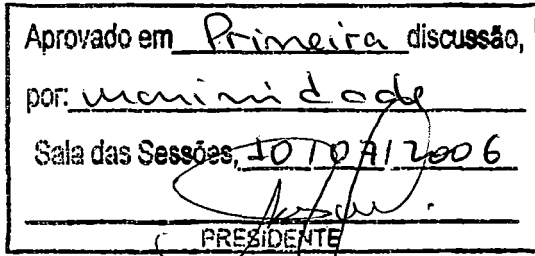 Aprovado em Primeira discussão,
por: unanimidade
Sala das Sessões, 10/07/2006
PRESIDENTE